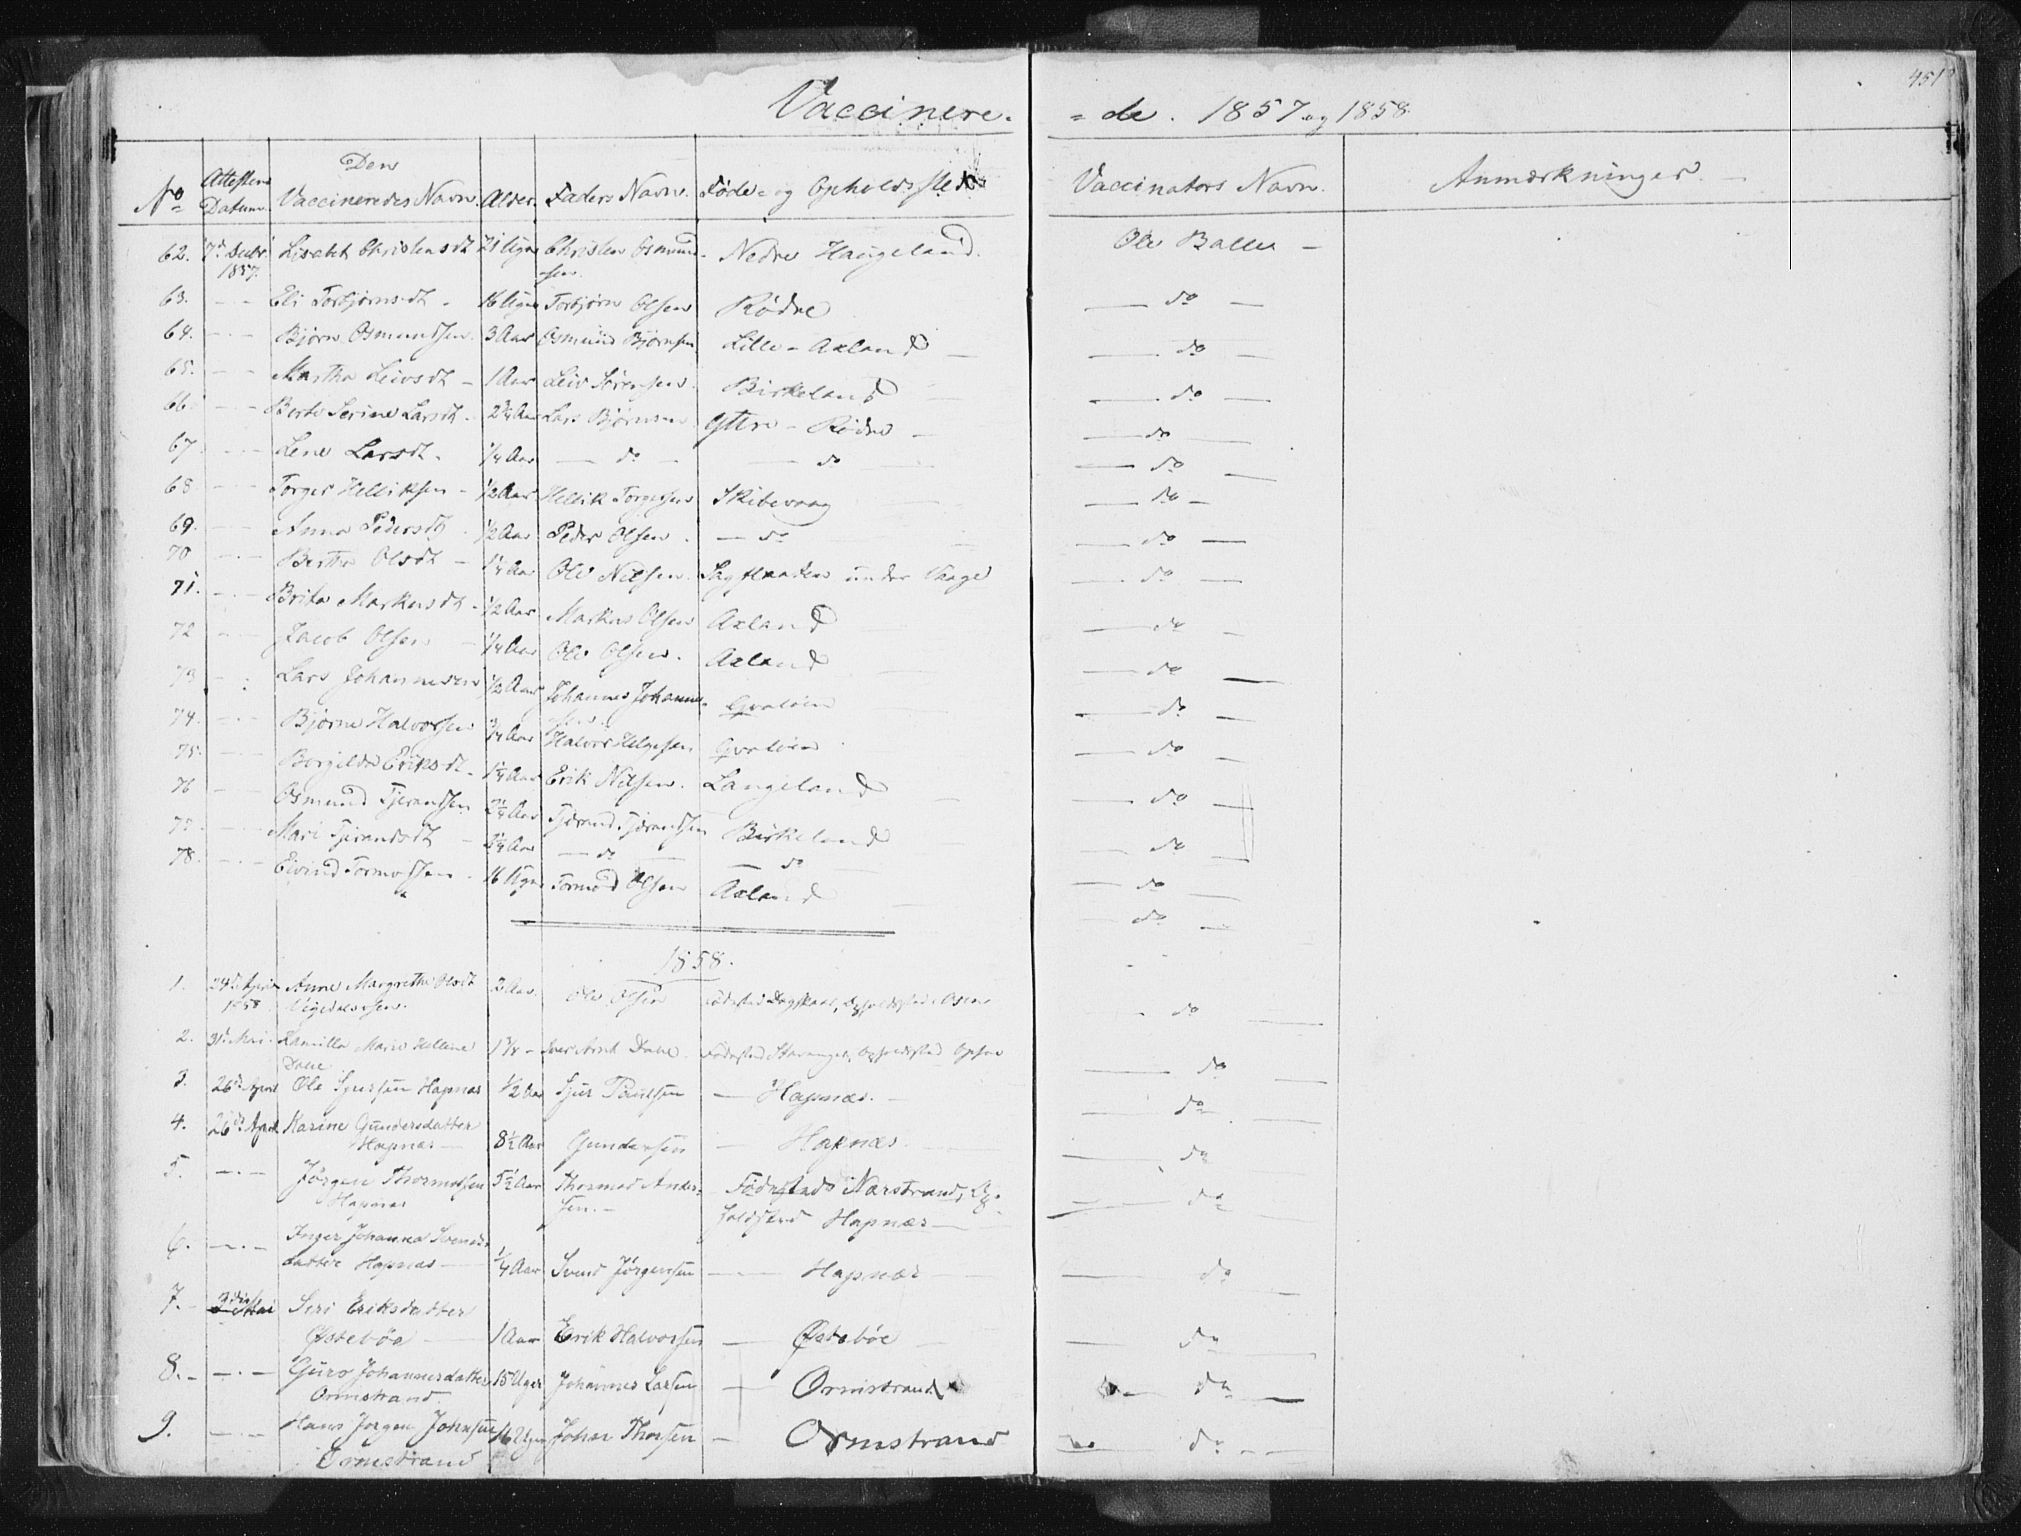 451
Vaccinere- =de. 1857 og 1858.
No Attestens Datum. Den Vaccineredes Navn. Alder. Faders Navn. Føde- og Opholdssted. Vaccinators Navn. Anmærkninger. —
62. 7d Decbr 1857. Lisabet Christensdt 21 Uger Christen Osmundsen. Nedre Haugeland. Ole Balle —
63. — — Eli Torbjørnsdt - 16 Uger Torbjørn Olsen Rødne — do —
64. — — Bjørn Osmundsen. 3 Aar Osmund Bjørnsen Lille-Axland — — do —
65. — — Martha Leivsdt — 1 Aar Leiv Sørensen Birkeland — do —
66. — — Berte Serine Larsdt. 2 3/4 Aar Lars Bjørnsen Yttre-Rødne — — do —
67. — — Lene Larsdt. 1/4 Aar — do — — do — — do —
68 — — Torger Helliksen - 1/2 Aar Hellik Torgersen Skibevaag — do —
69. — — Anna Pedersdt 1/2 Aar Peder Olsen. — do — do —
70 — — Bertha Olsdt — 1 1/4 Aar Ole Nilsen. Sagstranden under Vaage — do —
71. — — Brita Markusdt - 1/2 Aar Markus Olsen Axland — do —
72 — — Jacob Olsen — 1/4 Aar Ole Olsen. Axland — do —
73 — — Lars Johannesen 1/2 Aar Johannes Johannesen. Qvaløen — do —
74. — — Bjørne Halvorsen 3/4 Aar Halvor Helgesen Qvaløen — do —
75. — — Borgilda Eriksdt. 1 1/4 Aar Erik Nilsen. Langeland — do —
76 — — Osmund Tjerandsen 2 1/4 Aar Tjerand Tjerandsen Birkeland — do —
77. — — Mari Tjerandsdt — Aar — do — — do — do —
78. — — Eivind Tormodsen - 16 Uger Tormod Olsen Axland — do —
1858.
1. 24de April 1858. Anne Margrethe Olsdt 2 Aar. Ole Olsen Fødested Dagskaal, Opholdssted — do —
2. 31d Mai. Kamilla Marie Hellene Dave 1 3/4 - Dave. Fødested Stavanger, Opholdssted — do —
3. 26de April Ole Sjursen Hapnæs 1/2 Aar Sjur Paulsen — Hapnæs. — — do —
4. 26de April Karine Gundersdatter Hapnæs — 8 1/2 Aar Gundersen — Hapnæs. — do —
5. — — Jørgen Thormodsen Hapnæs 5 1/2 Aar Thormod Andersen. — Födested Narstrand, Opholdsted Hapnæs — — do
6. — — Inger Johanna Svendsdatter Hapnæs — 1/4 Aar Svend Jörgensen — Hapnæs — — do
7. — Mai Siri Eriksdatter Østebøe — 1 Aar Erik Halvorsen — Østebøe — — do —
8. — — — Guro Johannesdatter Ormstrand. 15 Uger Johannes Larsen — Ormstrand — do —
9. — — Hans Jorgen Johnsen Ormstrand 16 Uger Johan Thorsen — Ormstrand — do — —